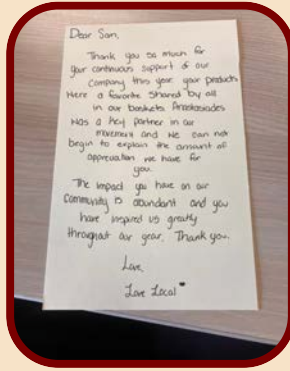 Dear Sam,
Thank you so much for
your continuous support of our
company this year your products
Were a favorite shared by all
in our baskets Anastasiades
Was a key partner in our
movement and we can not
begin to explain the amount of
appreciation we have for
you.
The impact you have on our
community is abundant and you
have inspired us greatly
throughout our year. Thank you.
Love,
Love Local